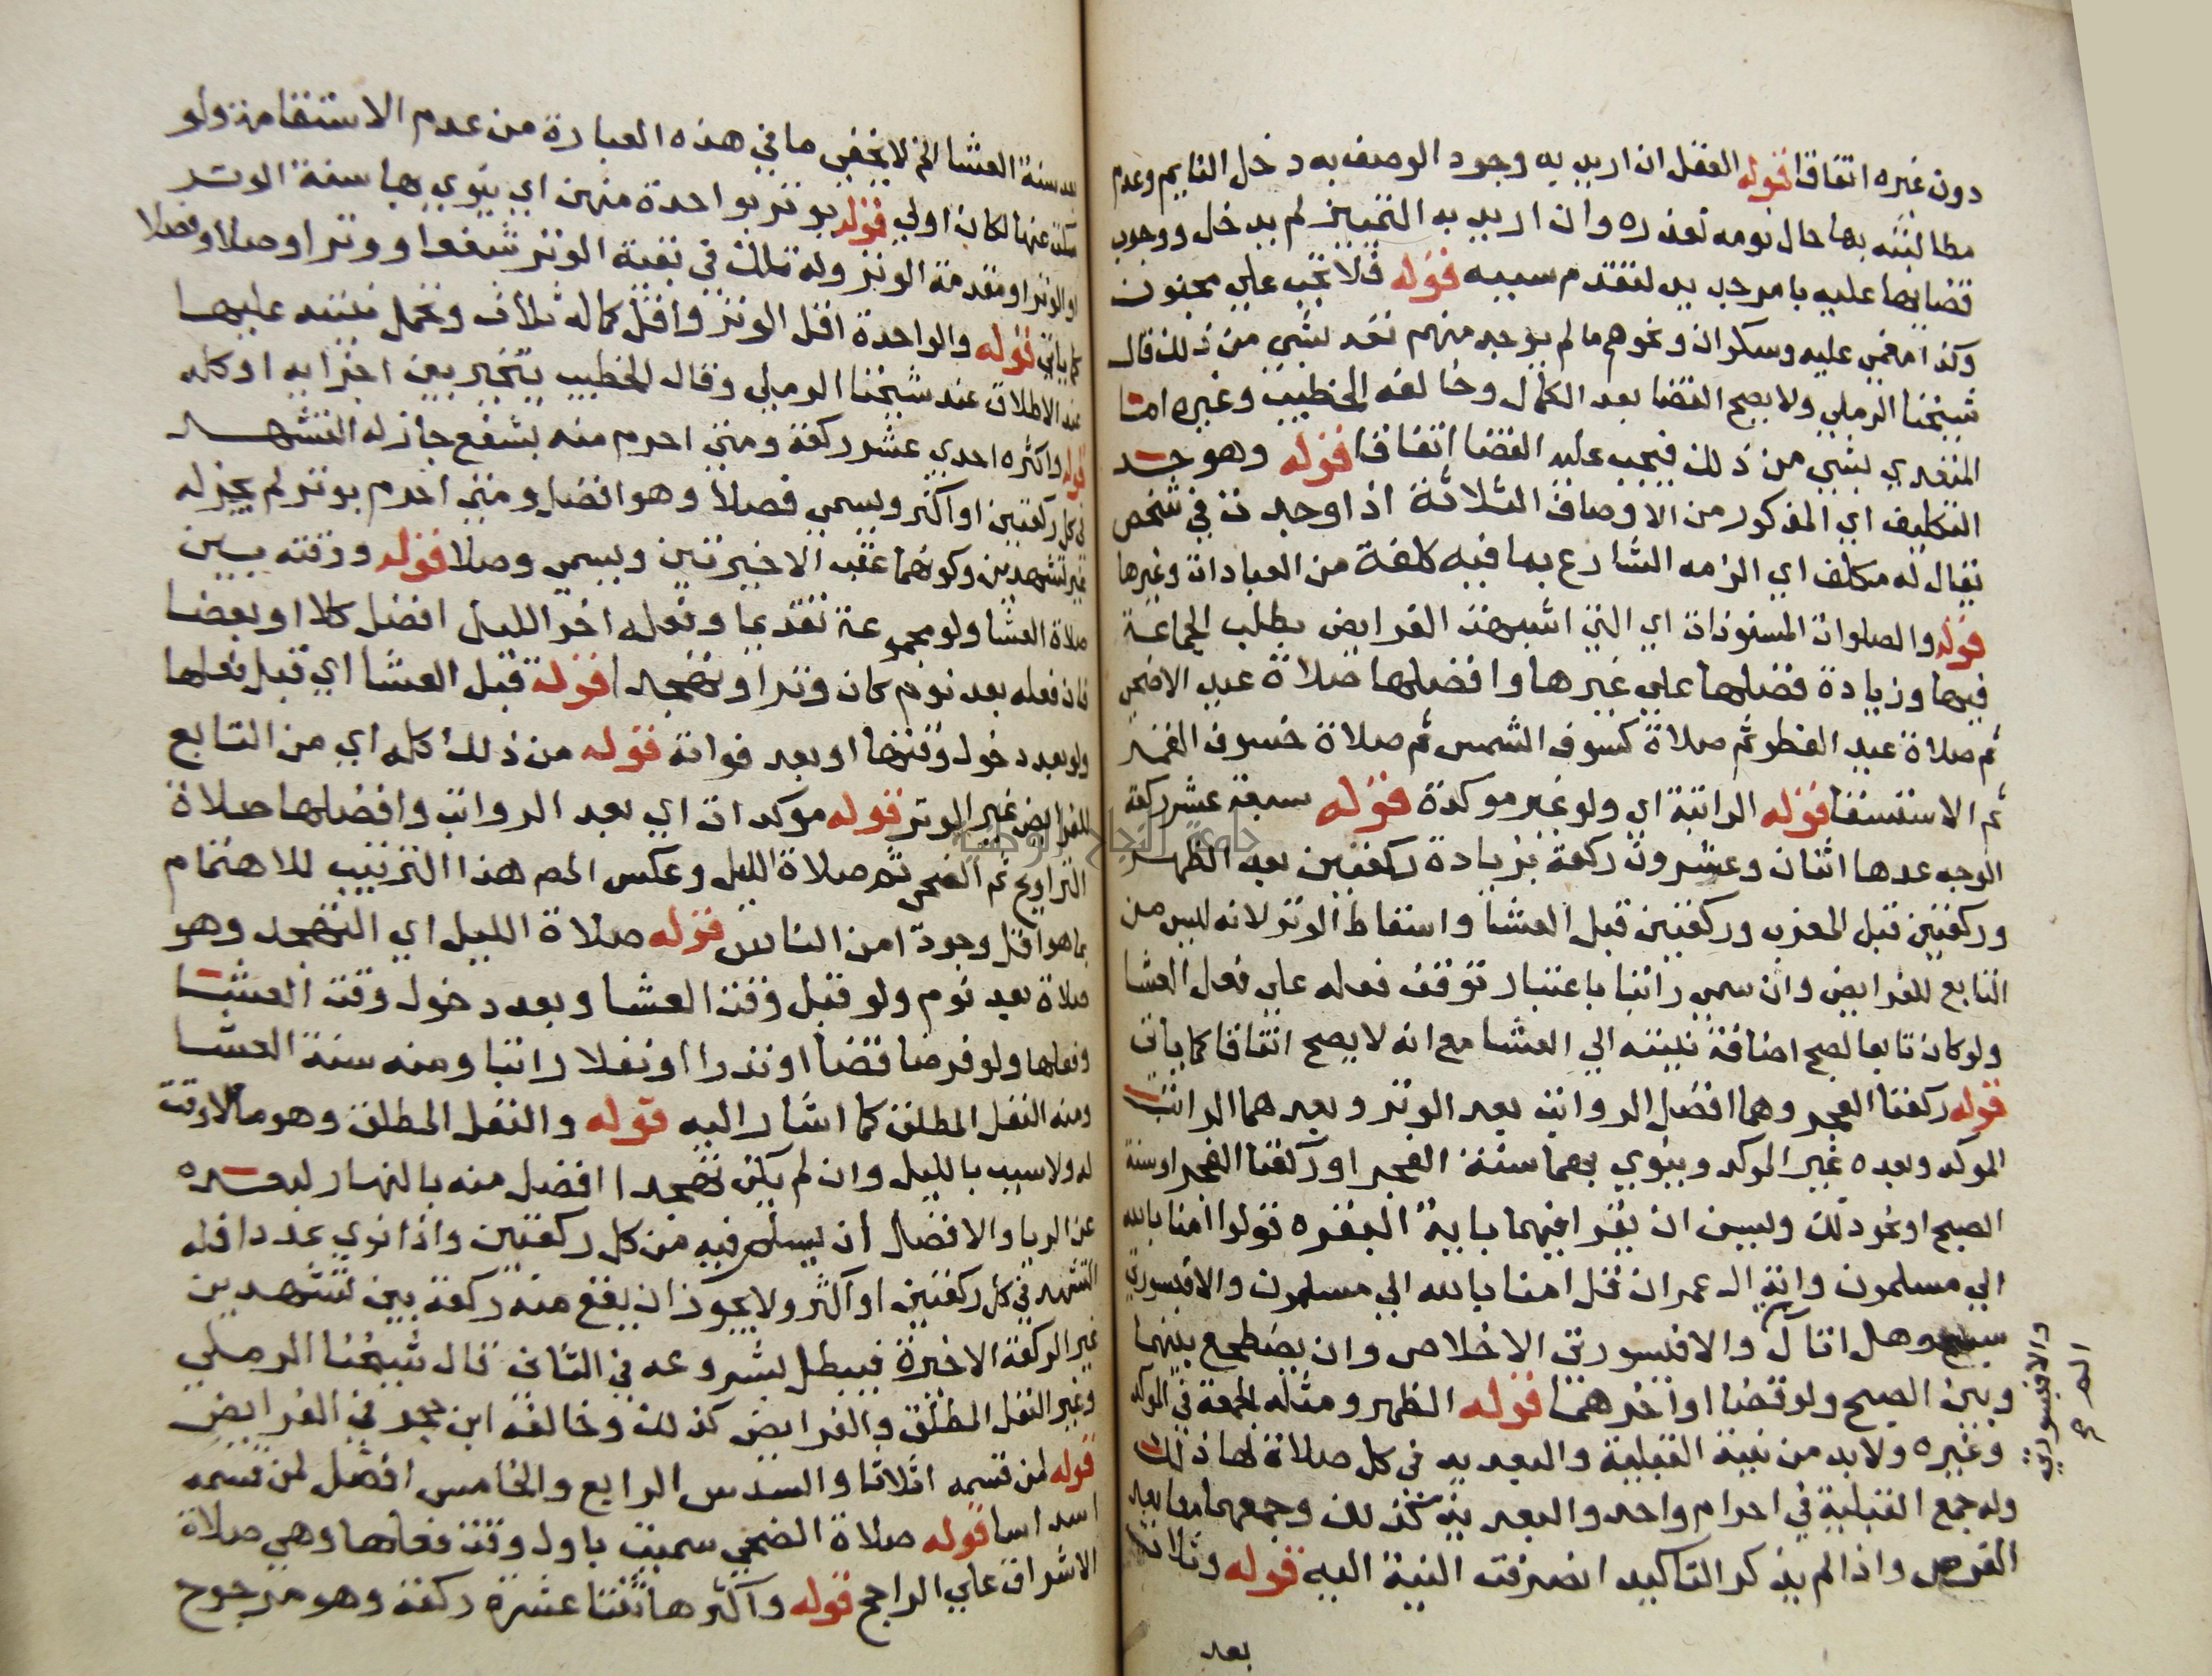 دون غيره اتفاقا قوله العقل ان اريد به وجود الوصف به دخل النايم وعدم
مطالبته بها حال نومه لعذره وان اريد به التمييز لم يدخل ووجوب
قضايها عليه بامر جديد لتقدم سببه قوله فلا تجب علي مجنون
وكذا مغمي عليه وسكران ونحوهم ما لم يوجد منهم تعد بشي من ذلك قال
شيخنا الرملي ولا يصح القضا بعد الكمال وخالفه الخطيب وغيره اما
المتعدي بشي من ذلك فيجب عليه القضا اتفاقا قوله وهو حد
التكليف اي المذكور من الاوصاف الثلاثة اذا وجدت في شخص
يقال له مكلف اي الزمه الشارع بما فيه كلفة من العبادات وغيرها
قوله والصلوات المسنونات اي التي اشبهت الفرايض بطلب الجماعة
فيها وزيادة فضلها علي غيرها وافضلها صلاة عيد الاضحي
ثم صلاة عيد الفطر ثم صلاة كسوف الشمس ثم صلاة خسوف القمر
ثم الاستسقا قوله الراتبة اي ولو غير موكدة قوله سبعة عشر ركعة
الوجه عدها اثنان وعشرون ركعة بزيادة ركعتين بعد الظهر
وركعتين قبل المغرب وركعتين قبل العشا واسقاط الوتر لانه ليس من
التابع للفرايض وان سمي راتبا باعتبار توقف فعله علي فعل العشا
ولو كان تابعا لصح اضافة نيته الي العشا مع انه لا يصح اتفاقا كما ياتي
قوله ركعتا الفجر وهما افضل الرواتب بعد الوتر وبعدهما الراتب
الموكد وبعده غير الموكد وينوي بهما سنة الفجر او ركعتا الفجر او سنة
الصبح او نحو ذلك ويسن ان يقرا فيهما باية البقره قولوا امنا بالله
الي مسلمون واية ال عمران قل امنا بالله الي مسلمون والا فبسورتي
وهل اتاك والا فبسورتي الاخلاص وان يضطجع بينهما
والا فبسورتي
الم ح
وبين الصبح ولو قضا او اخرهما قوله الظهر ومثله الجمعة في الموكد
وغيره ولا بد من نية القبلية والبعدية في كل صلاة لها ذلك
وله جمع القبلية في احرام واحد والبعدية كذلك وجمعهما معا بعد
الفرض واذا لم يذكر التاكيد انصرفت النية اليه قوله وثلاثا
بعد
بعد سنة العشا الخ لا يخفي ما في هذه العبارة من عدم الاستقامة ولو
سكت عنها لكان اولي قوله يوتر بواحدة منهن اي ينوي بها سنة الوتر
او الوتر او مقدمة الوتر وله تلك في بقية الوتر شفعا ووترا وصلا وفصلا
كما ياتي قوله والواحدة اقل الوتر واقل كماله ثلاث وتحمل نيته عليها
عند الاطلاق عند شيخنا الرملي وقال الخطيب يتخير بين اجزايه او كله
قوله واكثره احدي عشر ركعة ومتي احرم منه بشفع جاز له التشهد
في كل ركعتين او اكثر ويسمي فصلا وهو افضل ومتي احرم بوتر لم يجز له
غير تشهدين وكونهما عقب الاخيرتين ويسمي وصلا قوله ووقته بين
صلاة العشا ولو مجموعة تقديما وفعله اخر الليل افضل كلا او بعضا
فان فعله بعد نوم كان وترا وتهجدا قوله قبل العشا اي قبل فعلها
ولو بعد دخول وقتها او بعد فواته قوله من ذلك كله اي من التابع
للفرايض غير الوتر قوله موكدات اي بعد الرواتب وافضلها صلاة
التراويح ثم الضحي ثم صلاة الليل وعكس المص هذا الترتيب للاهتمام
بما هو اقل وجودا من الناس قوله صلاة الليل اي التهجد وهو
صلاة بعد نوم ولو قبل وقت العشا وبعد دخول وقت العشا
وفعلها ولو فرضا قضا او نذرا او نفلا راتبا ومنه سنة العشا
ومنه النفل المطلق كما اشار اليه قوله والنفل المطلق وهو ما لا وقت
له ولا سبب بالليل وان لم يكن تهجدا افضل منه بالنهار لبعده
عن الريا والافضل ان يسلم فيه من كل ركعتين واذا نوي عددا فله
التشهد في كل ركعتين او اكثر ولا يجوز ان يقع منه ركعة بين تشهدين
غير الركعة الاخيرة فيبطل بشروعه في الثاني قال شيخنا الرملي
وغير النفل المطلق والفرايض كذلك وخالفه ابن حجر في الفرايض
قوله لمن قسمه اثلاثا والسدس الرابع والخامس افضل لمن قسمه
اسداسا قوله صلاة الضحي سميت باول وقت فعلها وهي صلاة
الاشراق علي الراجح قوله واكثرها ثنتا عشرة ركعة وهو مرجوح